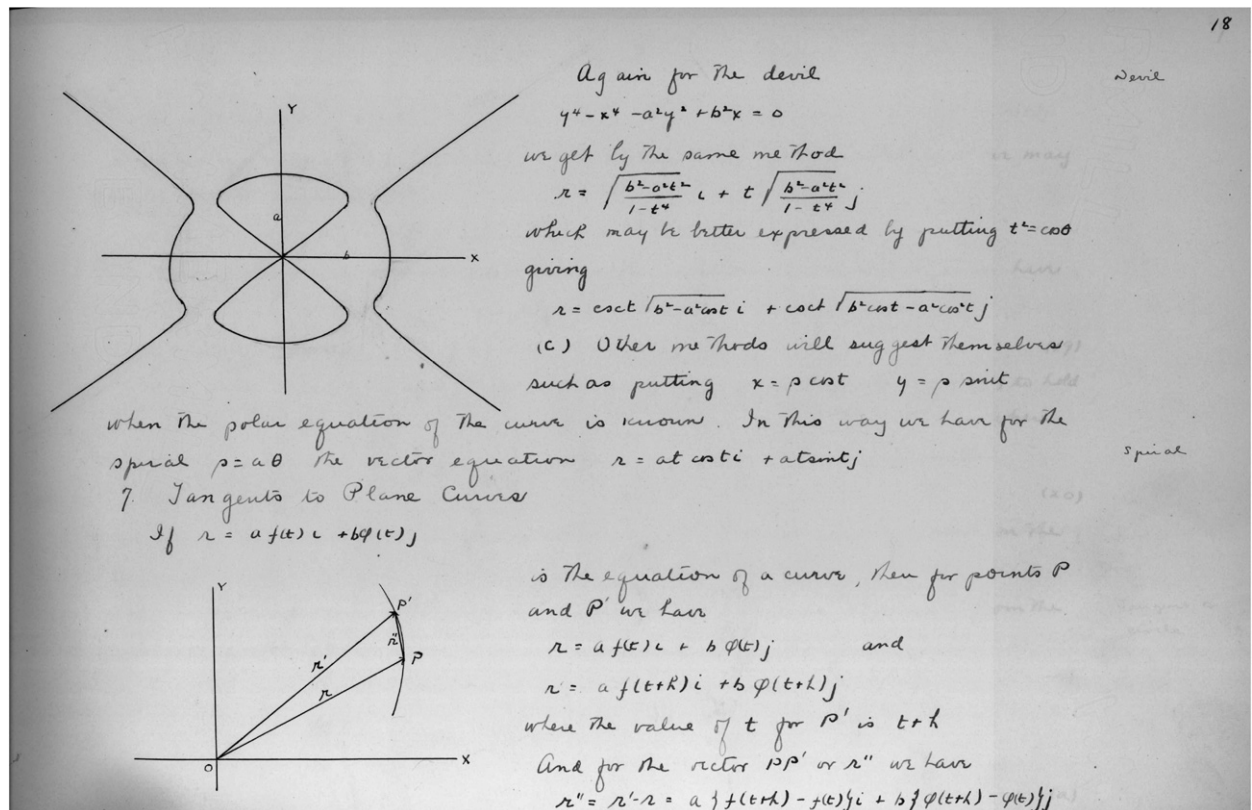 18
Again for the devil
Devil
y⁴ - x⁴ - a²y² + b²x = 0
we get by the same method
r = √(b²-a²t²/1-t⁴) i + t √(b²-a²t²/1-t⁴) j
which may be better expressed by putting t² = cosθ
giving
r = csct √(b²-a²cost) i + csct √(b²cost - a²cos²t) j
(c) Other methods will suggest themselves
such as putting x = ρ cost y = ρ sint
when the polar equation of the curve is known. In this way we have for the
spiral ρ = aθ the vector equation r = at cost i + at sint j
Spiral
7. Tangents to Plane Curves
If r = a f(t) i + bφ(t) j
is the equation of a curve, then for points P
and P' we have
r = a f(t) i + b φ(t) j and
r' = a f(t+h) i + b φ(t+h) j
where the value of t for P' is t+h
And for the vector PP' or r" we have
r" = r'-r = a {f(t+h) - f(t)} i + b {φ(t+h) - φ(t)} j
Y
a
b
X
Y
P'
r"
P
r'
r
O
X